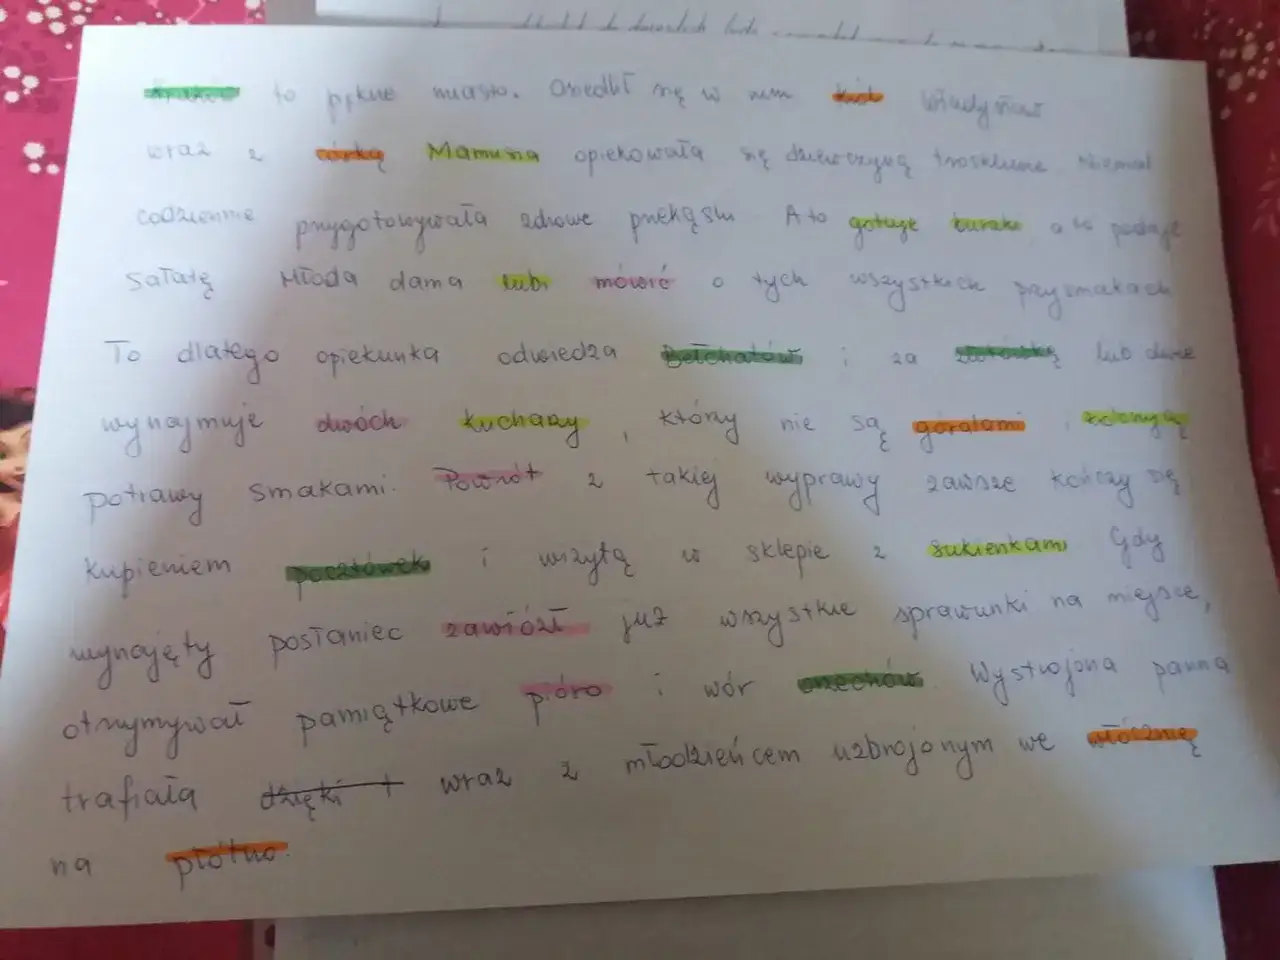 Kraków to piękne miasto. Osiedlił się w nim król Władysław
wraz z córką Mamusia opiekowała się dziewczyną troskliwie Niemal
codziennie przygotowywała zdrowe przekąski A to gotuje buraki a to podaje
sałatę Młoda dama lubi mówić o tych wszystkich przysmakach
To dlatego opiekunka odwiedza Bełchatów i za złotówkę lub dwie
wynajmuje dwóch kucharzy, którzy nie są góralami,
potrawy smakami. Powrót z takiej wyprawy zawsze kończy się
kupieniem pocztówek i wizytą w sklepie z sukienkami Gdy
wynajęty posłaniec zawiózł już wszystkie sprawunki na miejsce,
otrzymywał pamiątkowe pióro i wór orzechów. Wystrojona panna
trafiała dzięki t wraz z młodzieńcem uzbrojonym we włócznię
na płótno.